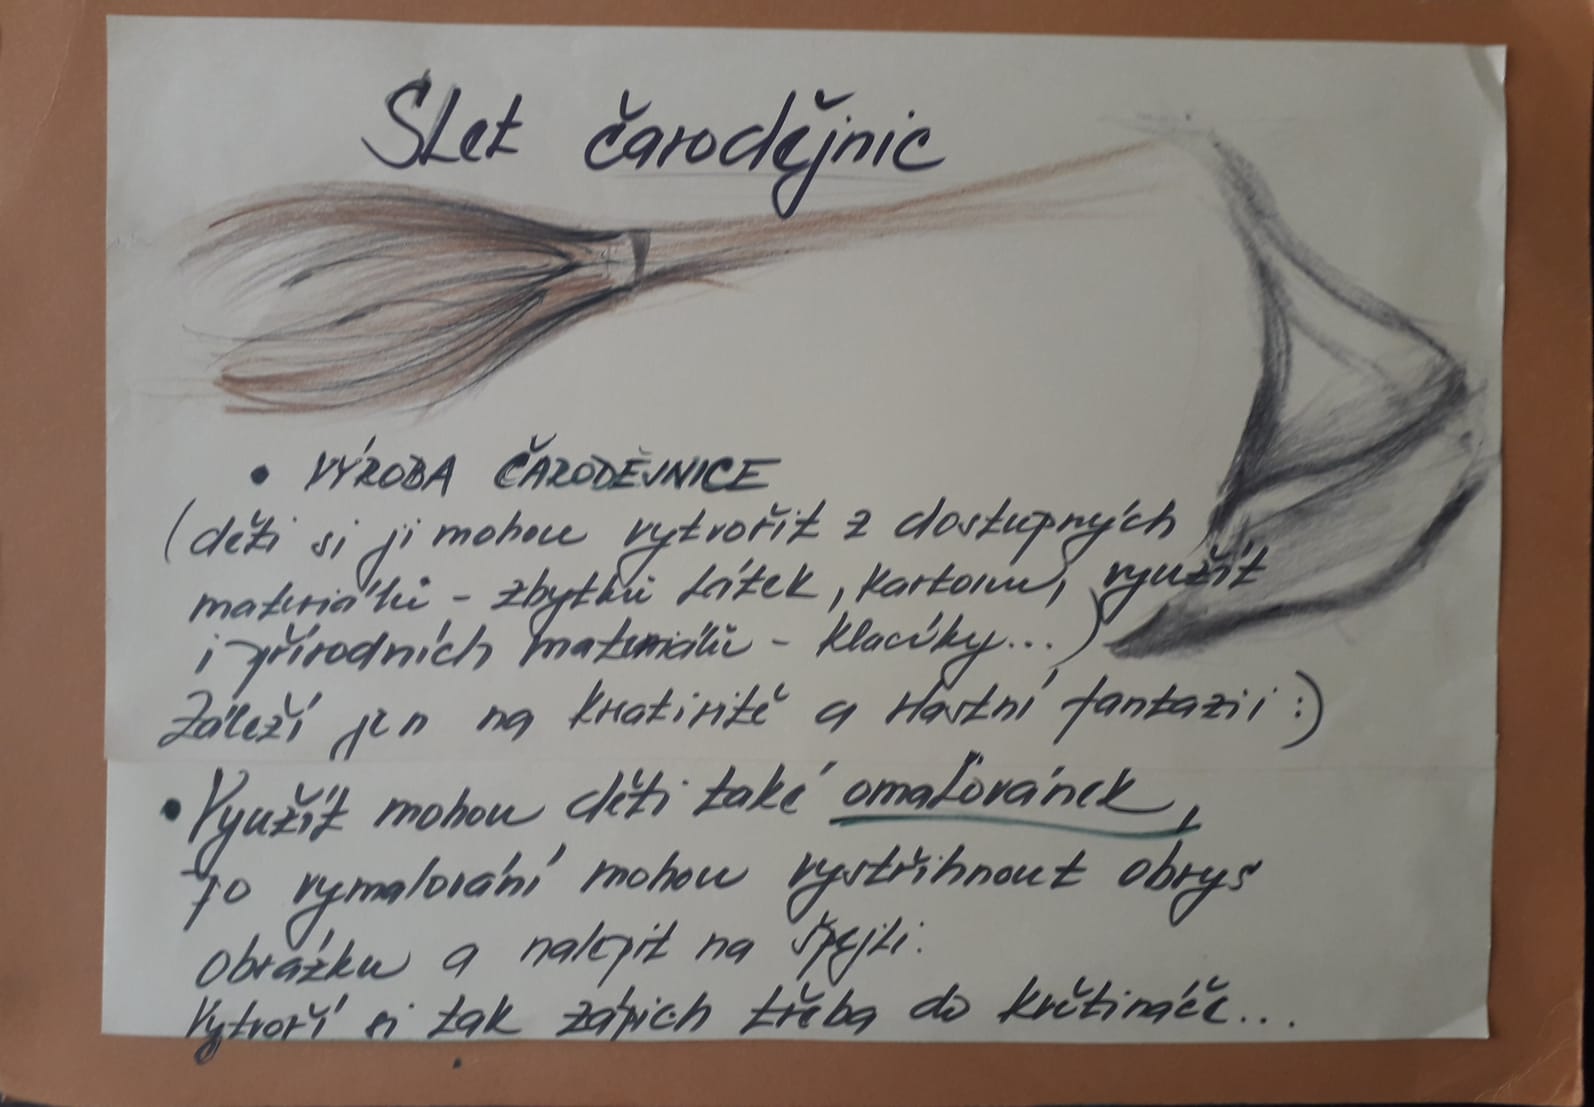 Slet čarodějnic
• VÝROBA ČARODĚJNICE
(děti si ji mohou vytvořit z dostupných
materiálů - zbytků látek, kartonu, využít
i přírodních materiálů - klacíky...)
Záleží jen na kreativitě a vlastní fantazii :)
• Využít mohou děti také omalovánek,
Po vymalování mohou vystřihnout obrys
obrázku a nalepit na špejli.
Vytvoří si tak zápich třeba do květináče...